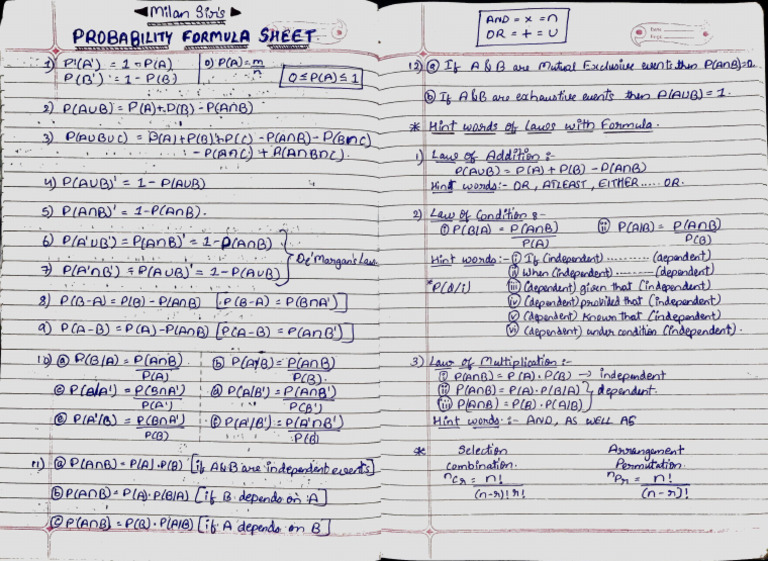 Milan Sir's
PROBABILITY FORMULA SHEET.
1) P(A') = 1 - P(A)
P(B') = 1 - P(B)
0) P(A) = m/n
0 ≤ P(A) ≤ 1
2) P(A∪B) = P(A)+P(B) - P(A∩B)
3) P(A∪B∪C) = P(A)+P(B)+P(C) - P(A∩B) - P(B∩C)
- P(A∩C) + P(A∩B∩C).
4) P(A∪B)' = 1 - P(A∪B)
5) P(A∩B)' = 1 - P(A∩B).
6) P(A'∪B') = P(A∩B)' = 1 - P(A∩B)
7) P(A'∩B') = P(A∪B)' = 1 - P(A∪B)
De'Margan's Law.
8) P(B-A) = P(B) - P(A∩B) [P(B-A) = P(B∩A')]
9) P(A-B) = P(A) - P(A∩B) [P(A-B) = P(A∩B')]
10) ⓐ P(B/A) = P(A∩B)/P(A) ⓑ P(A/B) = P(A∩B)/P(B).
ⓒ P(B/A') = P(B∩A')/P(A') ⓓ P(A/B') = P(A∩B')/P(B')
ⓔ P(A'/B) = P(B∩A')/P(B) ⓕ P(A'/B') = P(A'∩B')/P(B)
11) ⓐ P(A∩B) = P(A).P(B) [if A&B are independent events]
ⓑ P(A∩B) = P(A).P(B/A) [if B depends on A]
ⓒ P(A∩B) = P(B).P(A/B) [if A depends on B]
AND = × = ∩
OR = + = ∪
Date
Page
12) ⓐ If A & B are Mutual Exclusive events then P(A∩B)=0.
ⓑ If A&B are exhaustive events then P(A∪B) = 1.
* Hint words of Laws with Formula.
1) Law of Addition :-
P(A∪B) = P(A) + P(B) - P(A∩B)
Hint words:- OR, ATLEAST, EITHER ..... OR.
2) Law of Condition :-
ⓘ P(B/A) = P(A∩B)/P(A) ⓘⓘ P(A/B) = P(A∩B)/P(B)
Hint words :- (i) If (independent) .......... (dependent)
(ii) When (independent) .......... (dependent)
*P(d/i) (iii) (dependent) given that (independent)
(iv) (dependent) provided that (independent)
(v) (dependent) known that (independent)
(vi) (dependent) under condition (independent).
3) Law of Multiplication :-
(i) P(A∩B) = P(A) . P(B) → independent
(ii) P(A∩B) = P(A) . P(B/A)
(iii) P(A∩B) = P(B) . P(A/B)
dependent.
Hint words :- AND, AS WELL AS
* Selection Arrangement
combination. Permutation.
nCr = n!/(n-r)! r! nPr = n!/(n-r)!